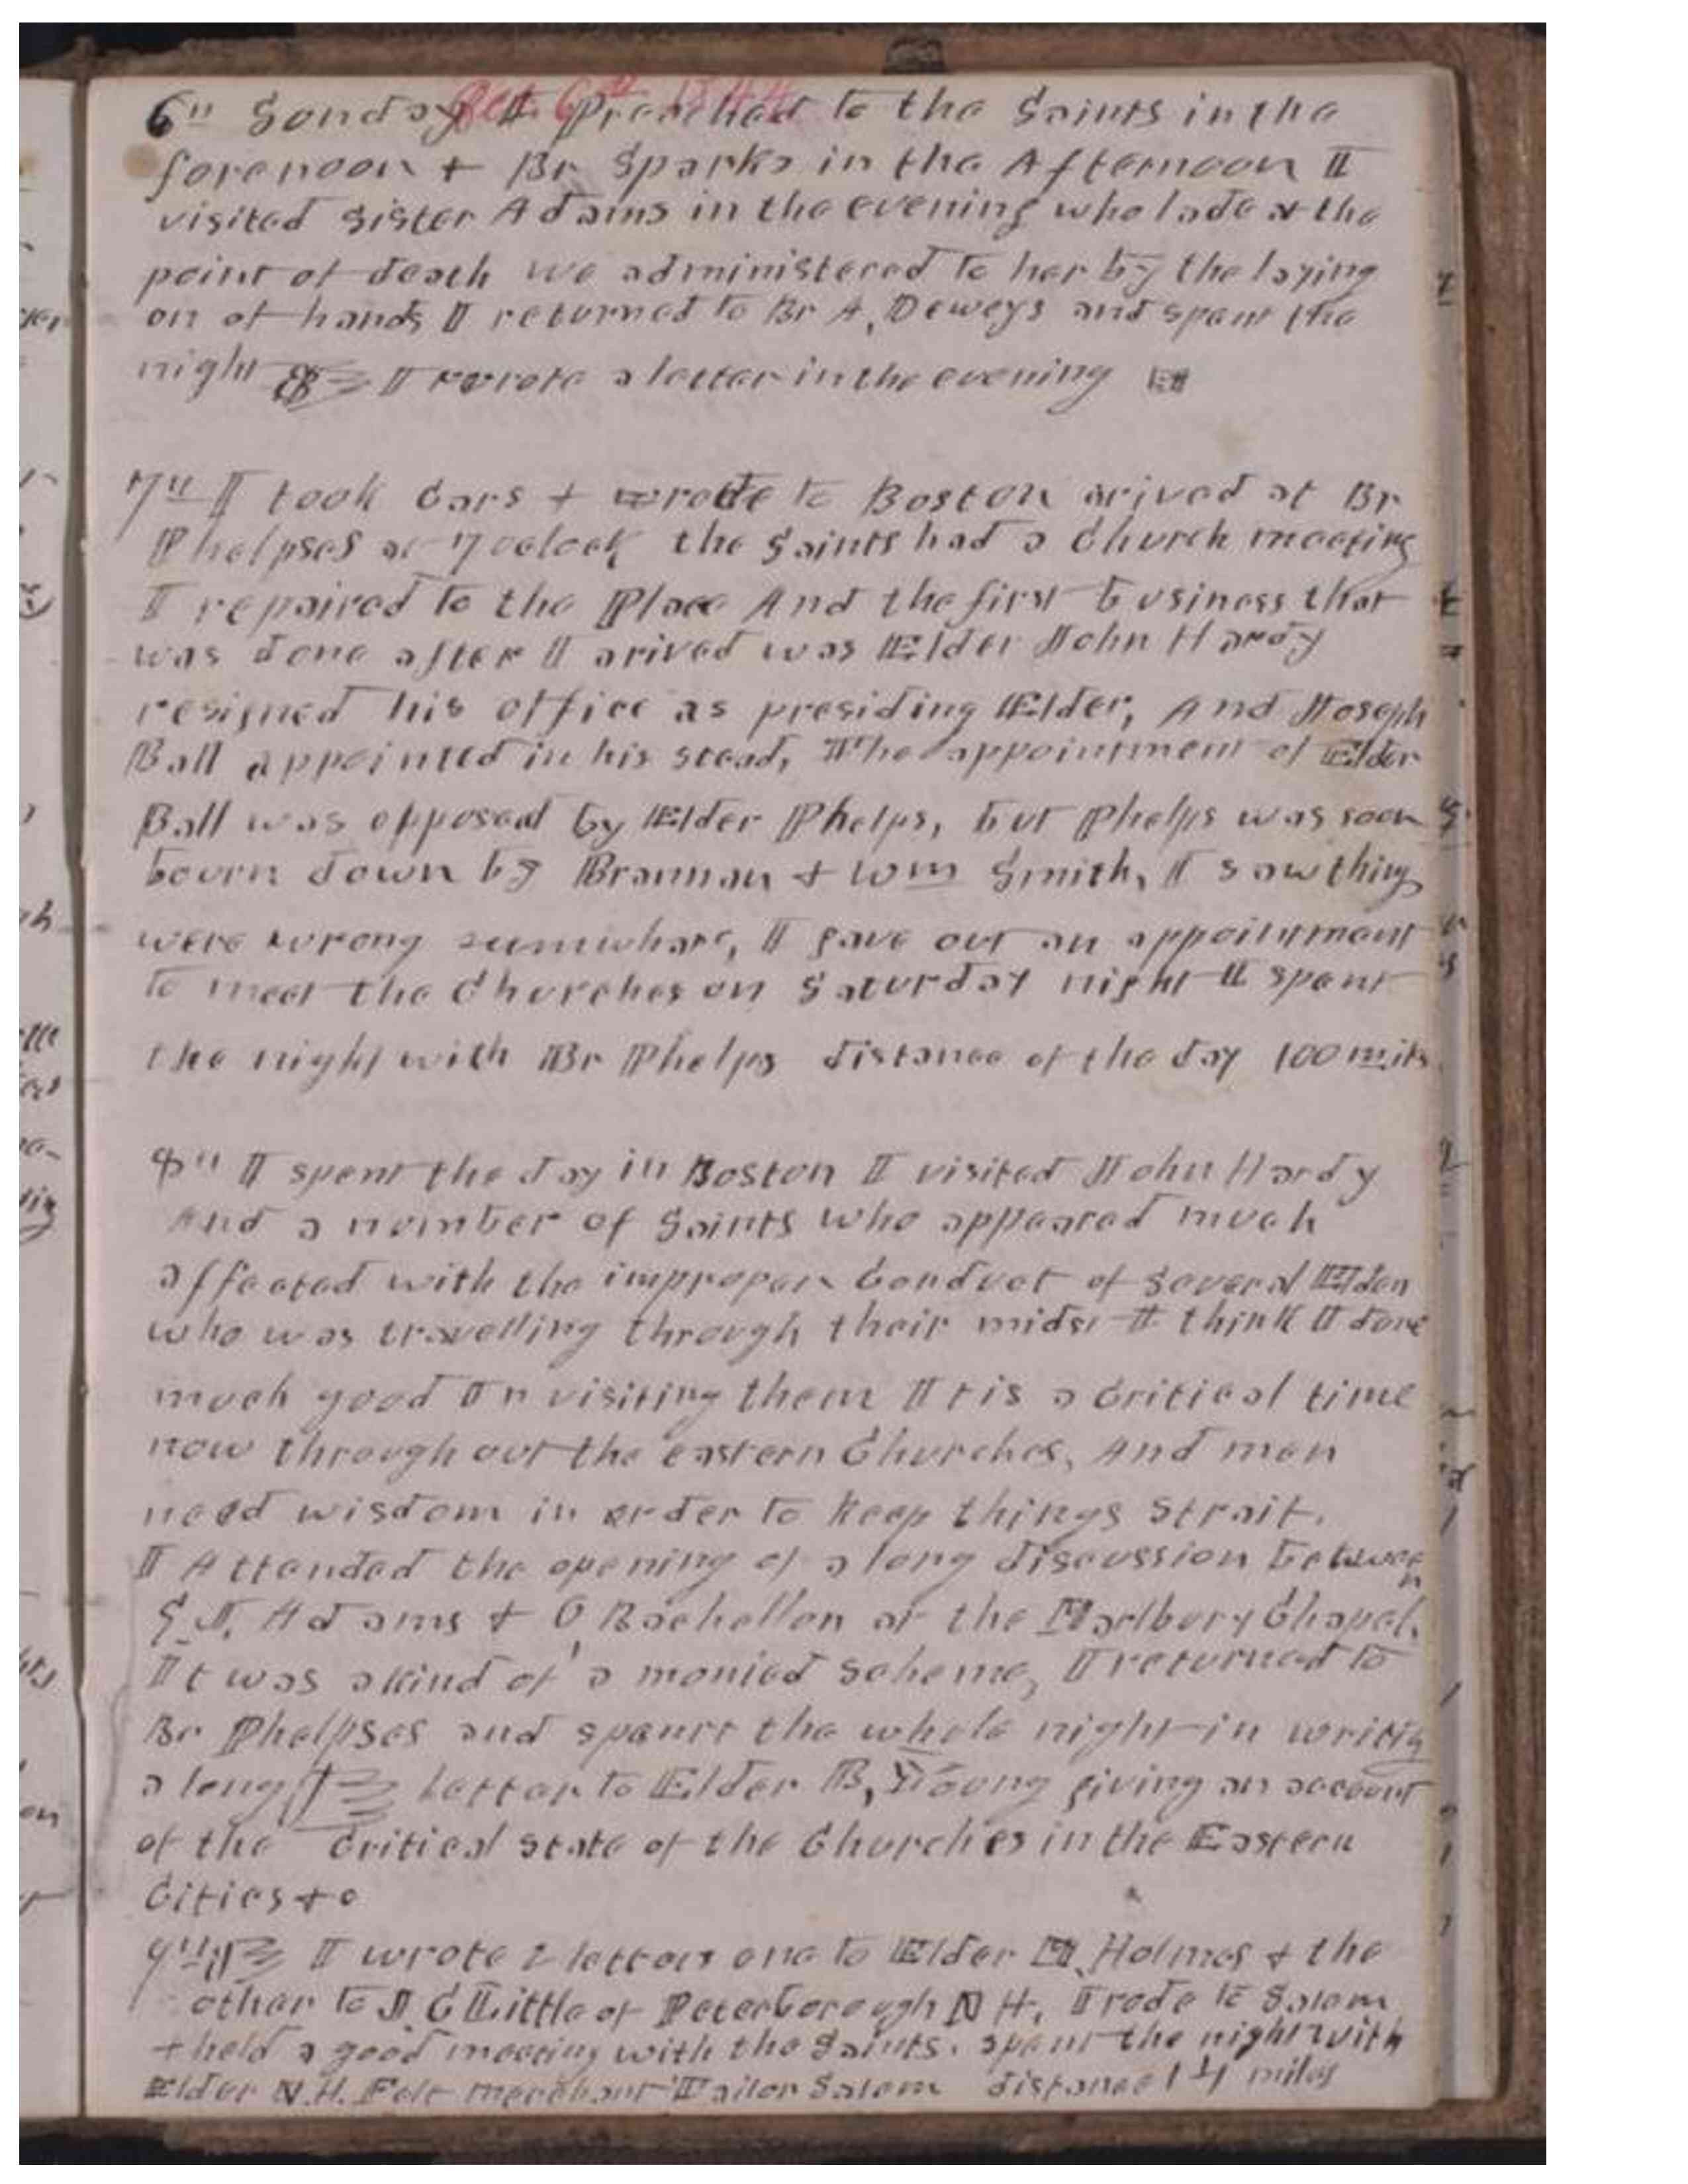 Oct 6th 1844
6th Sonday I Preached to the Saints in the
forenoon & Br Sparks in the Afternoon I
visited Sister Adams in the evening who lade at the
point of death we administered to her by the laying
on of hands I returned to Br A, Deweys and spent the
night I wrote a letter in the evening
7th I took Cars & rode to Boston arived at Br
Phelpses at 7 oclock the Saints had a Church meeting
I repaired to the Place And the first business that
was done after I arived was Elder John Hardy
resigned his office as presiding Elder, And Joseph
Ball appointed in his stead, The appointment of Elder
Ball was opposed by Elder Phelps, but Phelps was soon
bourn down by Brannan & Wm Smith, I saw things
were wrong sumwhare, I gave out an appointment
to meet the Churches on Saturday night I spent
the night with Br Phelps distance of the day 100 mils
8th I spent the day in Boston I visited John Hardy
And a number of Saints who appeared much
affected with the improper Conduct of several Elders
who was travelling through their midst I think I done
much good In visiting them It is a Critical time
now through out the eastern Churches, And men
need wisdom in order to keep things strait.
I Attended the opening of a long discussion between
G. J. Adams & O Bachellor at the Marlbury Chapel.
It was a kind of a monied scheme, I returned to
Br Phelpses and spent the whole night in writig
a long letter to Elder B, Young giving an account
of the Critical state of the Churches in the Eastern
Cities &c
9th I wrote 2 letters one to Elder M, Holmes & the
other to J. C Little of Peterborough N H, I rode to Salem
& held a good meeting with the Saints. spent the night with
Elder N. H. Felt merchant Tailor Salem distance 14 miles